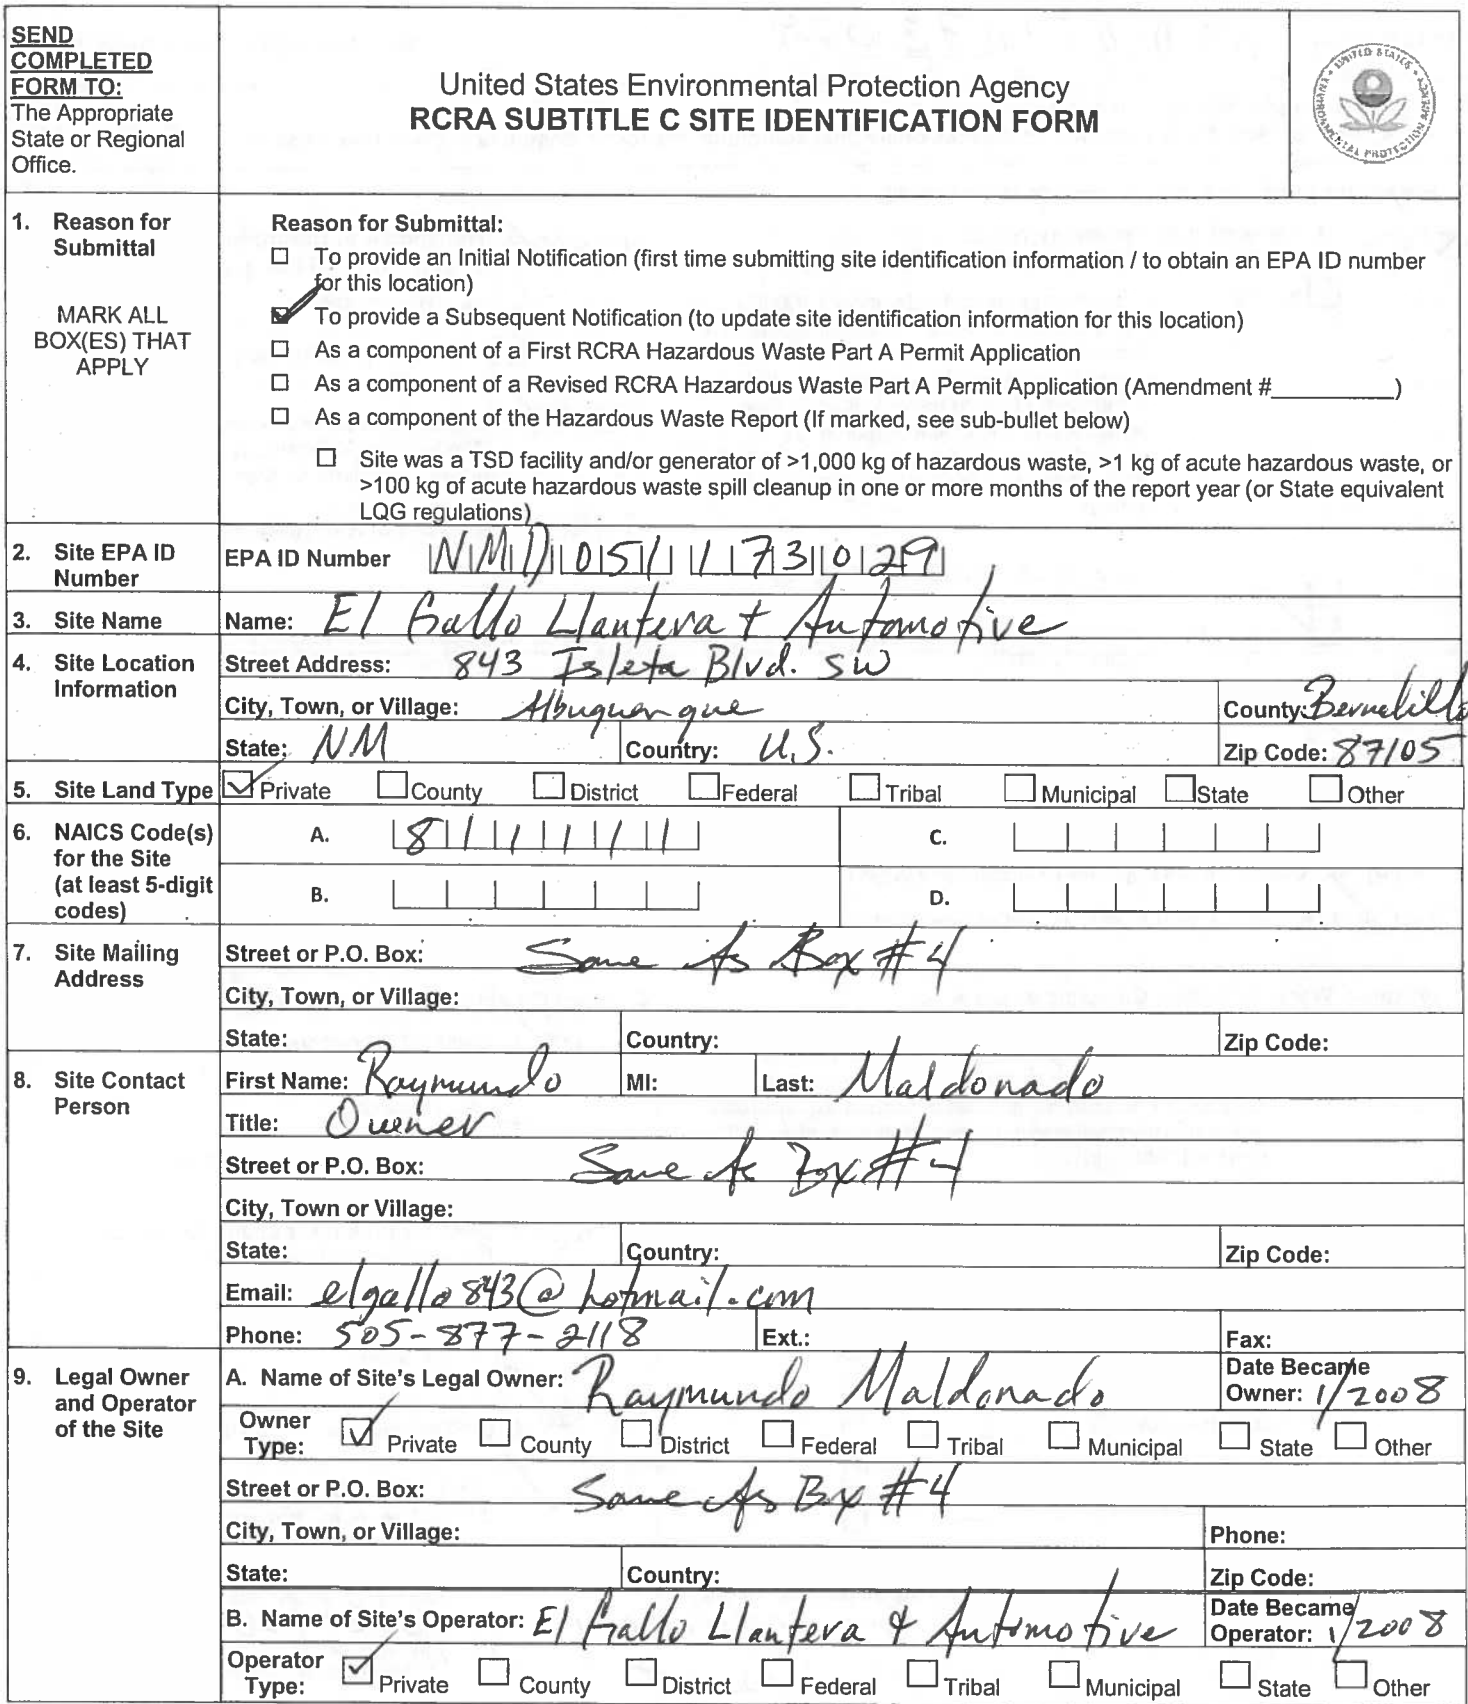 SEND
COMPLETED
FORM TO:
The Appropriate
State or Regional
Office.
United States Environmental Protection Agency
RCRA SUBTITLE C SITE IDENTIFICATION FORM
1. Reason for
Submittal
MARK ALL
BOX(ES) THAT
APPLY
Reason for Submittal:
☐ To provide an Initial Notification (first time submitting site identification information / to obtain an EPA ID number
for this location)
☑ To provide a Subsequent Notification (to update site identification information for this location)
☐ As a component of a First RCRA Hazardous Waste Part A Permit Application
☐ As a component of a Revised RCRA Hazardous Waste Part A Permit Application (Amendment #__________)
☐ As a component of the Hazardous Waste Report (If marked, see sub-bullet below)
☐ Site was a TSD facility and/or generator of >1,000 kg of hazardous waste, >1 kg of acute hazardous waste, or
>100 kg of acute hazardous waste spill cleanup in one or more months of the report year (or State equivalent
LQG regulations)
2. Site EPA ID
Number
EPA ID Number NMD051173029
3. Site Name
Name: El Gallo Llantera + Automotive
4. Site Location
Information
Street Address: 843 Isleta Blvd. SW
City, Town, or Village: Albuquerque County: Bernalillo
State: NM Country: U.S. Zip Code: 87105
5. Site Land Type ☑ Private ☐ County ☐ District ☐ Federal ☐ Tribal ☐ Municipal ☐ State ☐ Other
6. NAICS Code(s)
for the Site
(at least 5-digit
codes)
A. 811111 C.
B. D.
7. Site Mailing
Address
Street or P.O. Box: Same As Box #4
City, Town, or Village:
State: Country: Zip Code:
8. Site Contact
Person
First Name: Raymundo MI: Last: Maldonado
Title: Owner
Street or P.O. Box: Same As Box #4
City, Town or Village:
State: Country: Zip Code:
Email: elgallo843@hotmail.com
Phone: 505-877-2118 Ext.: Fax:
9. Legal Owner
and Operator
of the Site
A. Name of Site's Legal Owner: Raymundo Maldonado Date Became
Owner: 1/2008
Owner
Type: ☑ Private ☐ County ☐ District ☐ Federal ☐ Tribal ☐ Municipal ☐ State ☐ Other
Street or P.O. Box: Same As Box #4
City, Town, or Village: Phone:
State: Country: Zip Code:
B. Name of Site's Operator: El Gallo Llantera & Automotive Date Became
Operator: 1/2008
Operator
Type: ☑ Private ☐ County ☐ District ☐ Federal ☐ Tribal ☐ Municipal ☐ State ☐ Other
UNITED STATES
ENVIRONMENTAL PROTECTION AGENCY